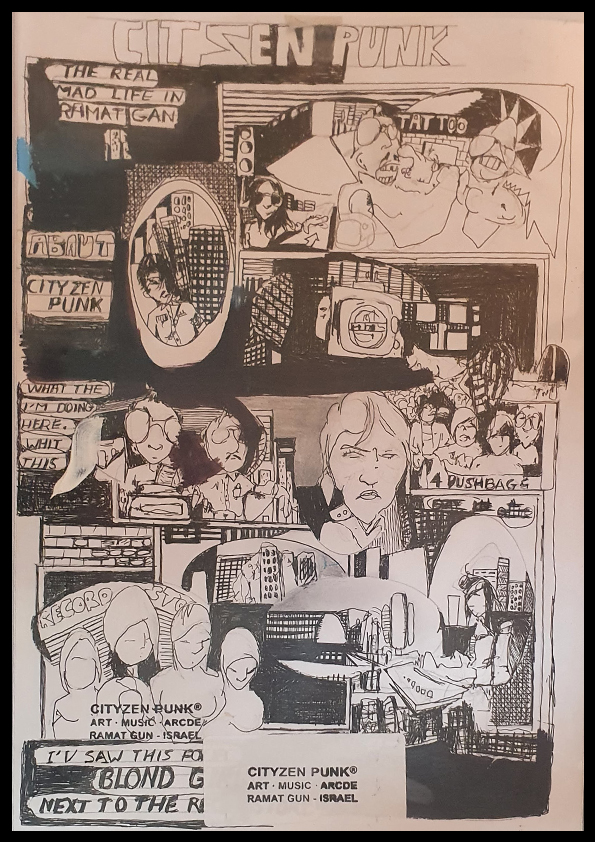 CITSZEN PUNK
THE REAL
MAD LIFE IN
RAMAT GAN
TATTOO
ABAUT
CITYZEN
PUNK
WHAT THE
I'M DOING
HERE.
WHIT
THIS
4 DUSHBAGS
RECORD
CITYZEN PUNK®
ART · MUSIC · ARCDE
RAMAT GUN - ISRAEL
I'V SAW THIS
BLOND G
NEXT TO THE
CITYZEN PUNK®
ART · MUSIC · ARCDE
RAMAT GUN - ISRAEL